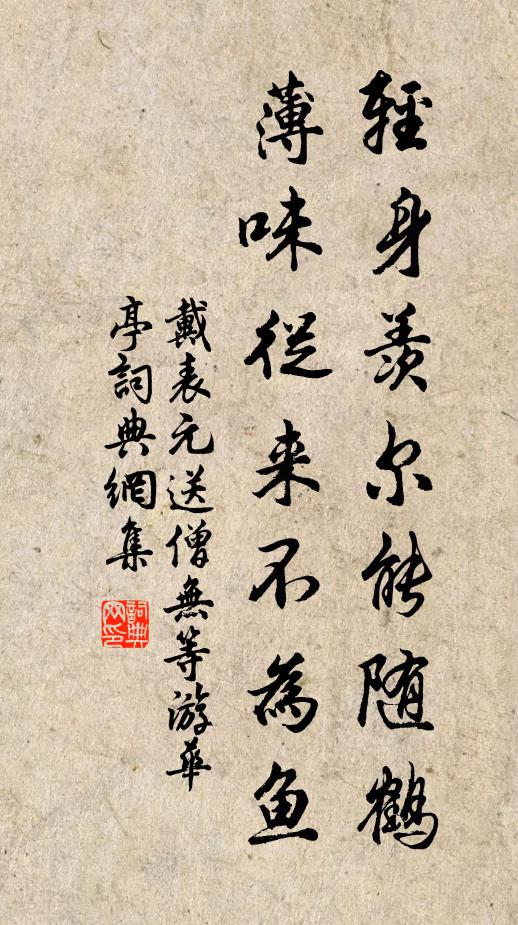 輕身羨尔能随鶴
薄味從来不為魚
戴表元送僧無等游華
亭詞典網集
詞典
网印